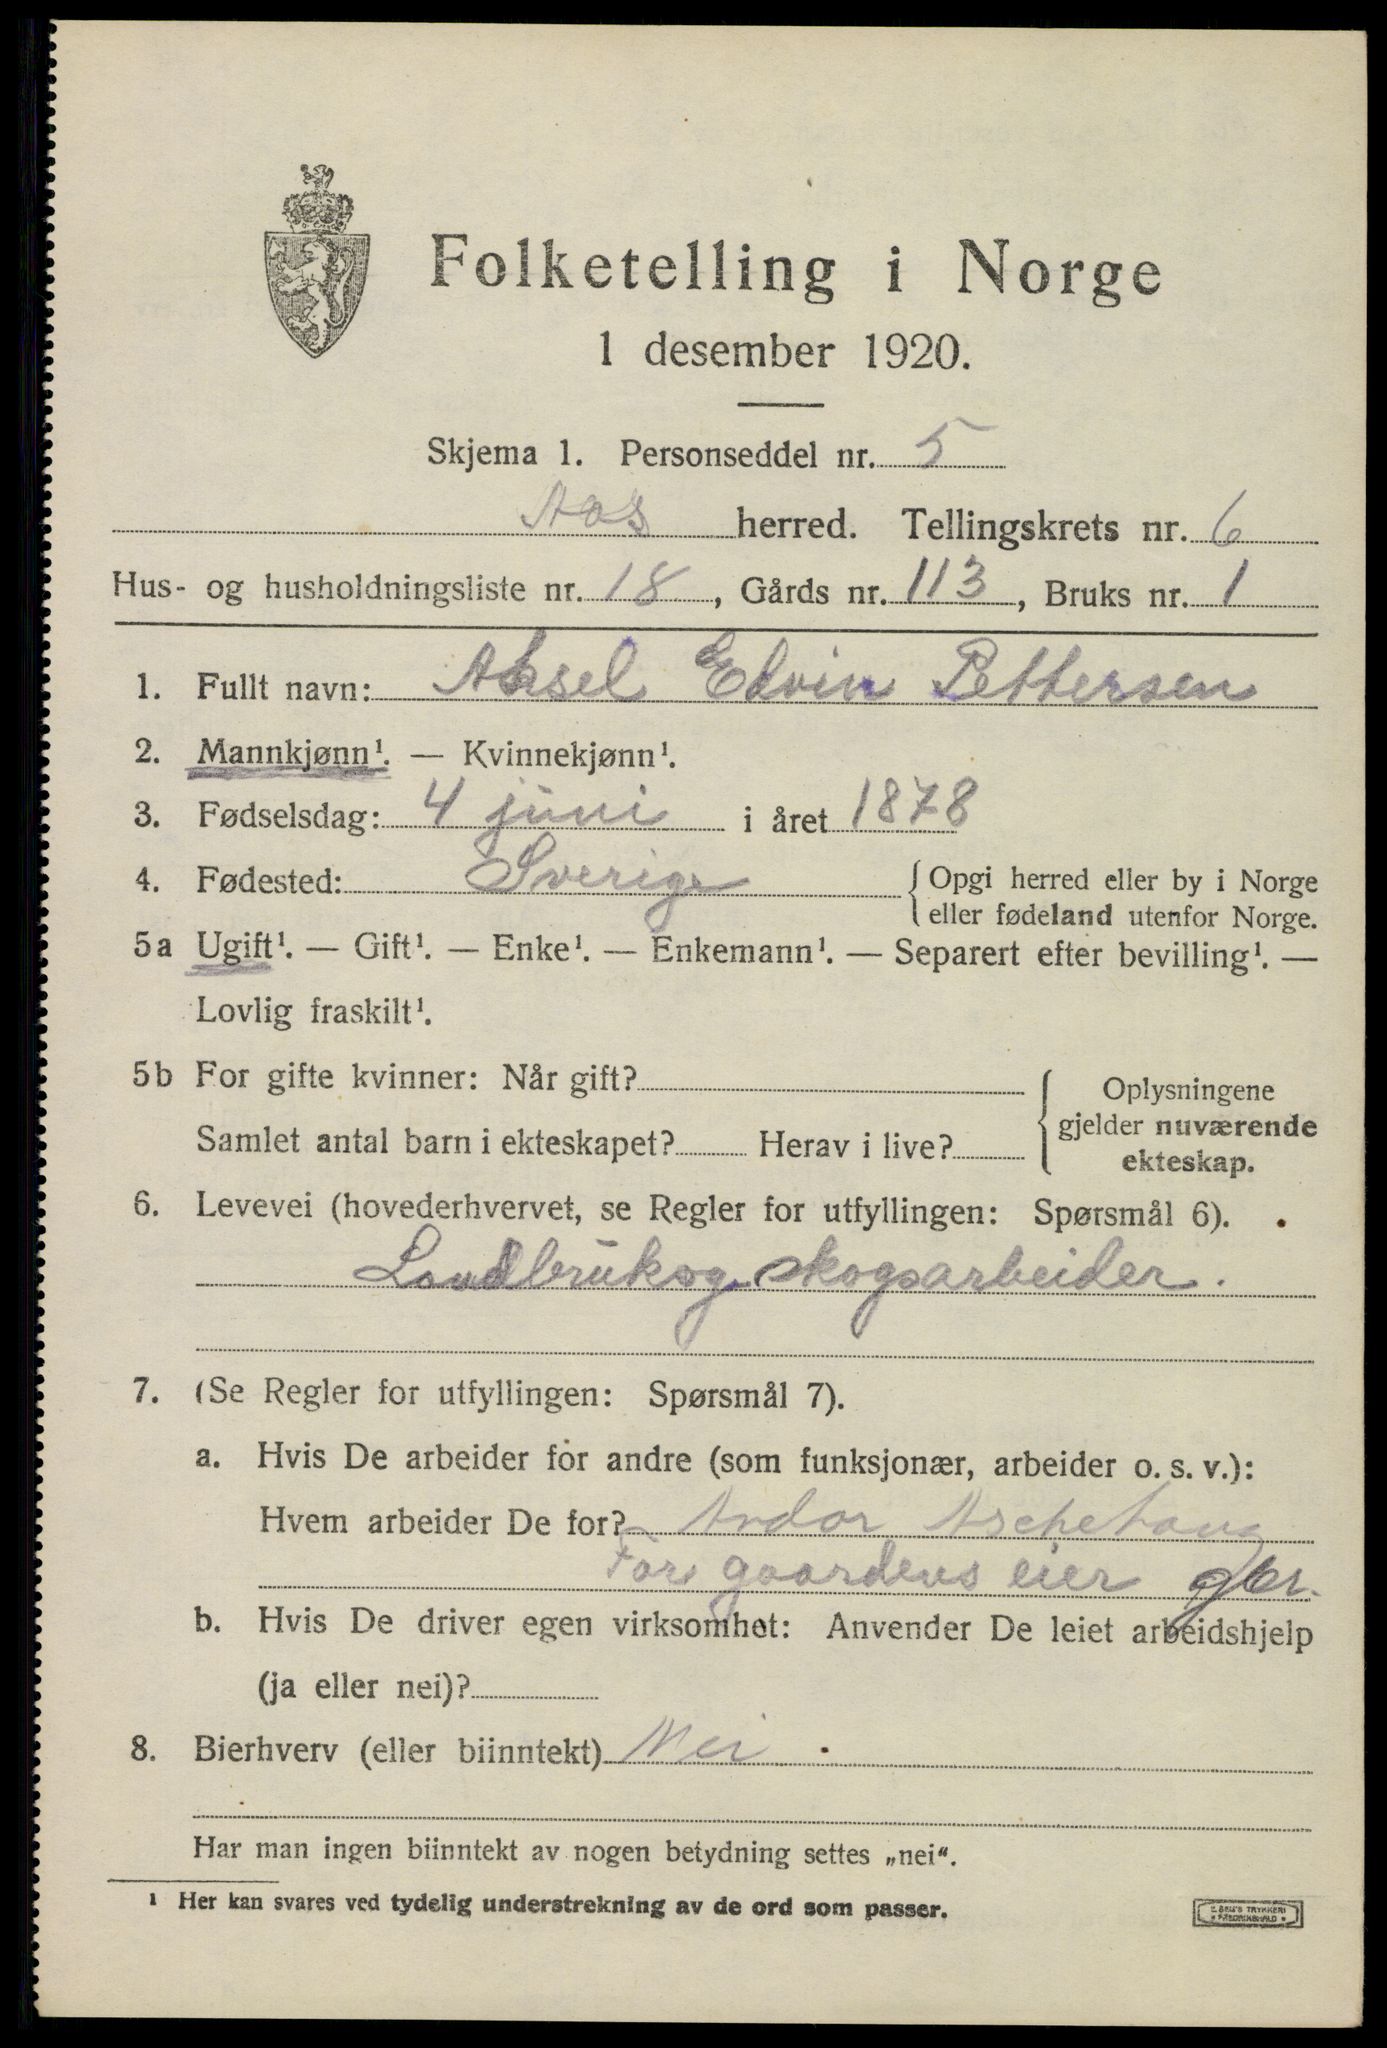 Folketelling i Norge
1 desember 1920.
Skjema 1. Personseddel nr. 5
Aas herred. Tellingskrets nr. 6
Hus- og husholdningsliste nr. 18, Gårds nr. 113, Bruks nr. 1
1. Fullt navn: Aksel Edvin Pettersen
2. Mannkjønn¹. — Kvinnekjønn¹.
3. Fødselsdag: 4 juni i året 1878
4. Fødested: Sverige { Opgi herred eller by i Norge
eller fødeland utenfor Norge.
5a Ugift¹. — Gift¹. — Enke¹. — Enkemann¹. — Separert efter bevilling¹. —
Lovlig fraskilt¹.
5b For gifte kvinner: Når gift? { Oplysningene
gjelder nuværende
Samlet antal barn i ekteskapet? Herav i live?
ekteskap.
6. Levevei (hovederhvervet, se Regler for utfyllingen: Spørsmål 6).
Landbruk og skogsarbeider.
7. (Se Regler for utfyllingen: Spørsmål 7).
a. Hvis De arbeider for andre (som funksjonær, arbeider o. s. v.):
Hvem arbeider De for? Andor Aschehoug
For gaardens eier gbr.
b. Hvis De driver egen virksomhet: Anvender De leiet arbeidshjelp
(ja eller nei)?
8. Bierhverv (eller biinntekt) Nei
Har man ingen biinntekt av nogen betydning settes „nei“.
¹ Her kan svares ved tydelig understrekning av de ord som passer.
E. SEM'S TRYKKERI
FREDRIKSHALD